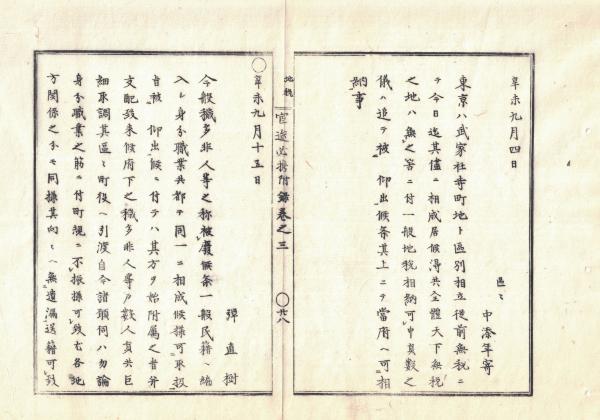 辛未九月四日
區々
中添年寄
東京ハ武家社寺町地ト區別相立従前無税ニ
テ今日迄其儘ニ相成居候得共全體天下無税
之地ハ無之筈ニ付一般地税相納可申員數之
儀ハ追テ被仰出候条其上ニテ當府ヘ可相
納事
地税
官途必携附録巻之三
○廿八
○辛未九月十五日
彈直樹
今般穢多非人等之称被廢候条一般民籍ヘ編
入シ身分職業共都テ同一ニ相成候様可取扱
旨被仰出候ニ付テハ其方ヲ始附属之者并
支配致来候府下之穢多非人等乃数人員共巨
細取調其區々町役ヘ引渡自今諸願伺ハ勿論
身分職業之筋ニ付町規ニ不振様可致尤各地
方関係之分モ同様其向々ヘ無遺漏送籍可致